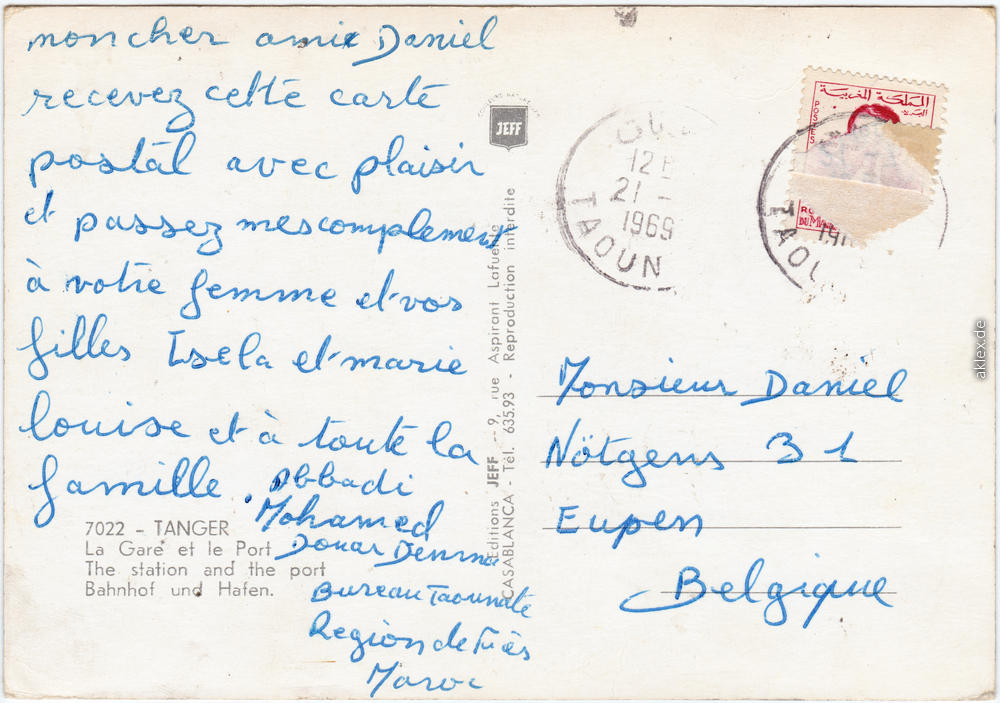 moncher amie Daniel
recevez cette carte
postal avec plaisir
et passez mescomplement
à votre femme et vos
filles Isela et marie
louise et à toute la
famille. Abbadi
Mohamed
Douar Demna
Bureau Taounate
Region de Fès
Maroc
7022 - TANGER
La Gare et le Port
The station and the port
Bahnhof und Hafen.
JEFF
Editions JEFF -- 9, rue Aspirant Lafuente
CASABLANCA - Tél. 635.93 - Reproduction interdite
12 H
21 -
1969
TAOUN
المملكة المغربية
البريد
POSTES
TAOU
Monsieur Daniel
Nötgens 31
Eupen
Belgique
aklex.de